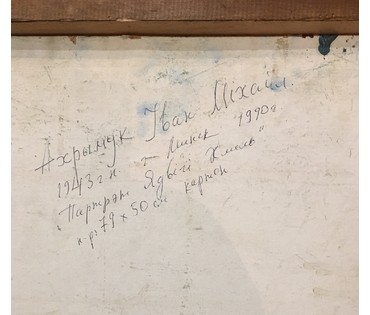 Ахрымчук Іван Міхайл.
1943 г.н. г. Минск 1990 г
"Партрэт Ядвігі Хмель"
к-р 79 х 50 см картон